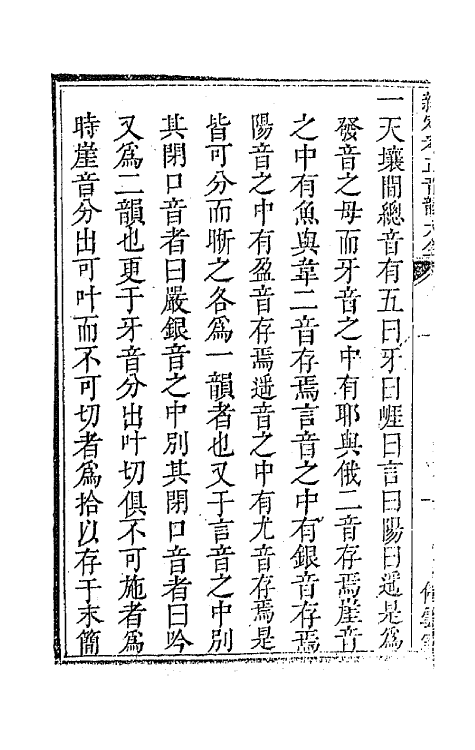 一天壤間總音有五曰牙曰啀曰言曰陽曰遥是爲
發音之母而牙音之中有耶與俄二音存焉崖音
之中有魚與韋二音存焉言音之中有銀音存焉
陽音之中有盈音存焉遥音之中有尤音存焉是
皆可分而晰之各爲一韻者也又于言音之中別
其閉口音者曰嚴銀音之中別其閉口音者曰吟
又爲二韻也更于牙音分出叶切俱不可施者爲
時崖音分出可叶而不可切者爲拾以存于末簡